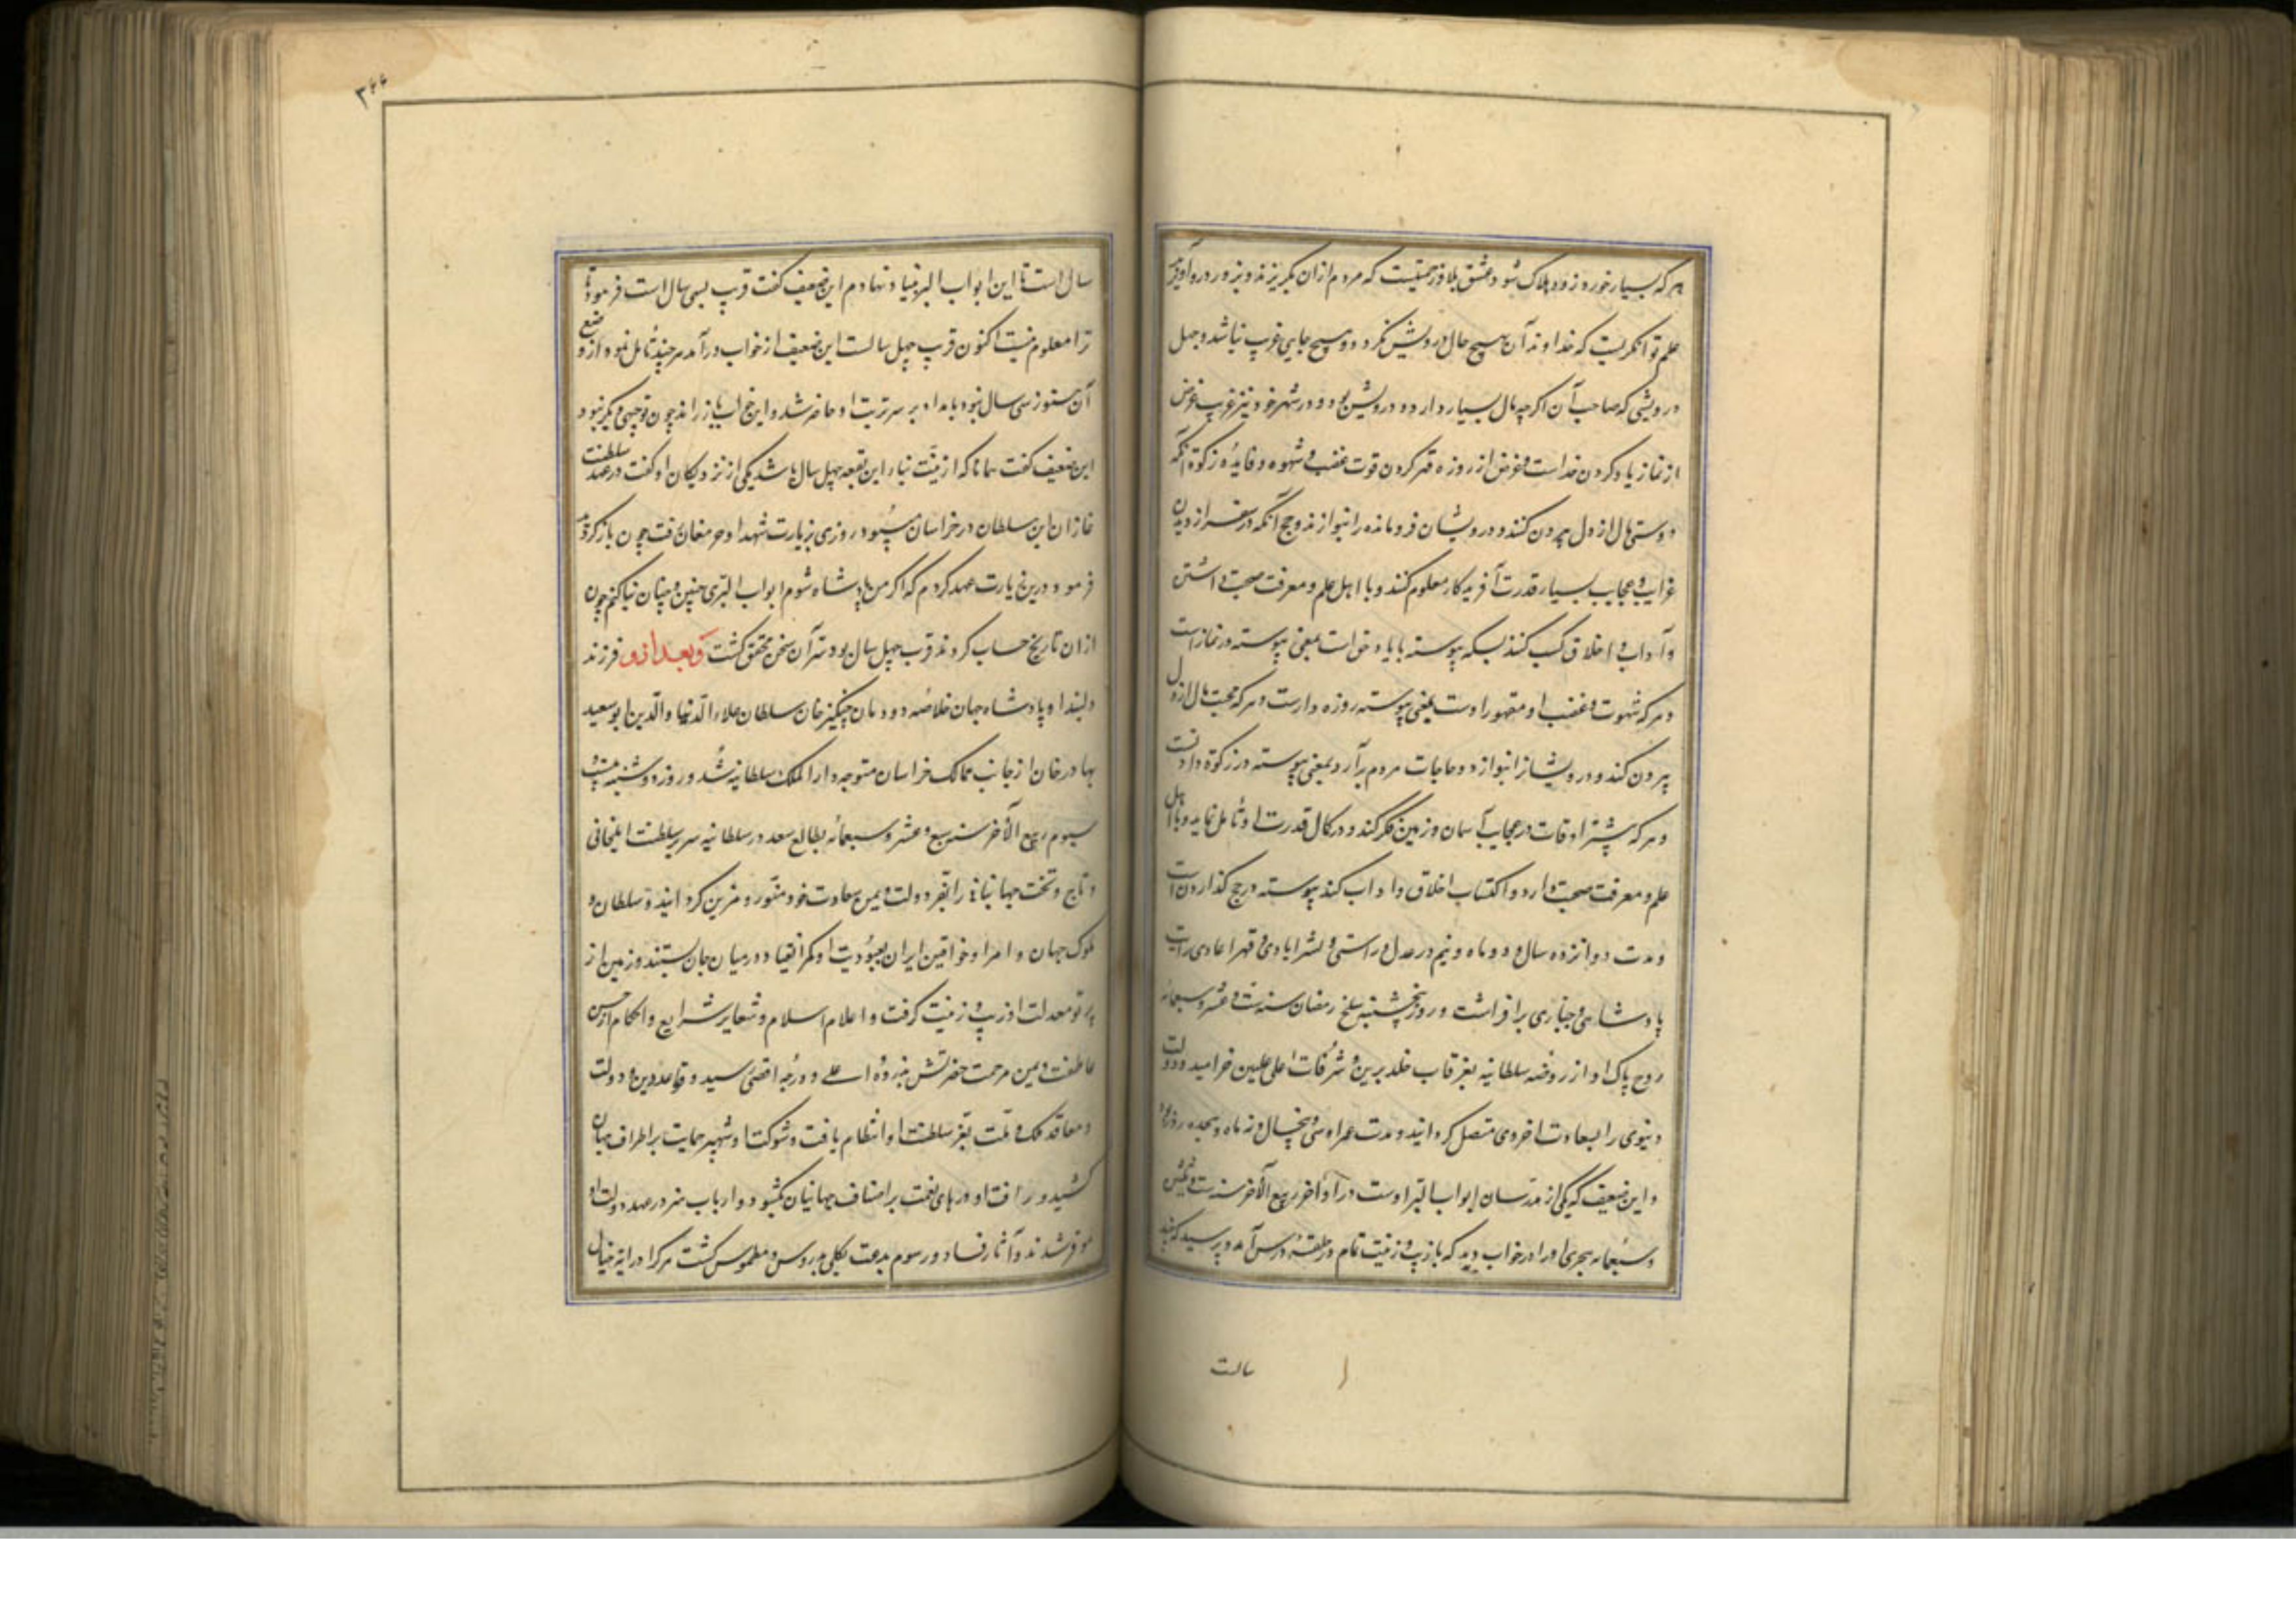 هرکه بسیار خورد زود هلاک شود و عشق بلا و زحمتیست که مردم ازان بگریزند و بزور درو آویزند
علم توانگریست که خداوند آن بهیچ حال درویش نگردد و بهیچ جایی غریب نباشد و جهل
درویشی که صاحب آن اگرچه مال بسیار دارد درویش بود و در شهر خود نیز غریب غرض
از نماز یاد کردن خداست و غرض از روزه قهر کردن قوت غضب و شهوه و فایدۀ زکوة آنکه
دوستی مال از دل بیرون کنند و درویشان فرومانده را بنوازند و حج آنکه در سفر از دیدن
غرایب و عجایب بسیار قدرت آفریدگار معلوم کنند و با اهل علم و معرفت صحبت داشتن
و آداب و اخلاق کسب کنند بسکه پیوسته با یاد خداست بمعنی پیوسته در نماز است
و هرکه شهوت و غضب او مقهور اوست بمعنی پیوسته روزه دارست و هرکه محبت مال از دل
بیرون کند و درویشانرا بنوازد و حاجات مردم برآرد بمعنی پیوسته در زکوة دادنست
و هرکه بیشتر اوقات در عجایب آسمان و زمین فکر کند و در کمال قدرت او تأمل نماید و با اهل
علم و معرفت صحبت دارد و اکتساب اخلاق و اداب کند پیوسته در حج گذاردن است
و مدت دوانزده سال و دو ماه و نیم در عدل و راستی و نشر ایادی و قهر اعادی رایت
پادشاهی و جباری برافراشت و روز پنجشنبه سلخ رمضان سنه ست و عشر و سبعمائه
روح پاک او از روضه سلطانیه بغرقاب خلد برین و شرفات اعلی علیین خرامید و دولت
دنیوی را بسعادت اخروی متصل گردانید و مدت عمر او سی و پنجسال و نه ماه و هجده روز بود
و این ضعیف که یکی از مدرسان ابواب البر اوست در اواخر ربیع الآخر سنه ست و ثلثین
و سبعمائه هجری اورا در خواب دید که با زیب و زینت تمام در حلقۀ درس آمد و پرسید که چند
سالست
۳۶۶
سال است تا این ابواب البر بنیاد نهادم این ضعیف گفت قریب بسی سال است فرمود که
ترا معلوم نیست اکنون قریب چهل سالست این ضعیف از خواب درآمد هرچند تأمل نمود از وضع
آن هنوز سی سال نبود بامداد بر سر تربت او حاضر شد و این خواب باز راند چون توجیهی دیگر نبود
این ضعیف گفت همانا که از نیت بناء این بقعه چهل سال باشد یکی از نزدیکان او گفت در عهد سلطنت
غازان این سلطان در خراسان می‌بود روزی بزیارت شهدا و حر مغان رفت چون باز گردید
فرمود درین زیارت عهد کردم که اگر من پادشاه شوم ابواب البری چنین و چنان بنا کنم چون
ازان تاریخ حساب کردند قرب چهل سال بود سر آن سخن محقق گشت و بعد ازو فرزند
دلبند او پادشاه جهان خلاصه دودمان چنگیز خان سلطان علاء الدنیا والدین ابو سعید
بهادر خان از جانب ممالک خراسان متوجه دار الملک سلطانیه شد و روز دوشنبه بیست و
سیوم ربیع الآخر سنه سبع و عشر و سبعمائه بطالع سعد در سلطانیه سریر سلطنت ایلخانی
و تاج و تخت جهانبانی را بفر دولت و یمن سعادت خود منور و مزین گردانید و سلطان و
ملوک جهان و امرا و خواقین ایران بعبودیت او کمر انقیاد در میان جان بستند و زمین از
پرتو معدلت او زیب و زینت گرفت و اعلام اسلام و شعایر شرایع و احکام از حسن
عاطفت و یمن مرحمت حضرتش بذروه اعلی و درجه اقصی رسید و قواعد دین و دولت
و معاقد ملک و ملت بفر سلطنت او انتظام یافت و شوکت او شهپر حمایت بر اطراف جهان
کشید و رافت او درهای نعمت بر اصناف جهانیان بگشود و ارباب هنر در عهد دولت او
موفر شدند و آثار فساد و رسوم بدعت بکلی مدروس و مطموس گشت هرکرا در آینه خیال